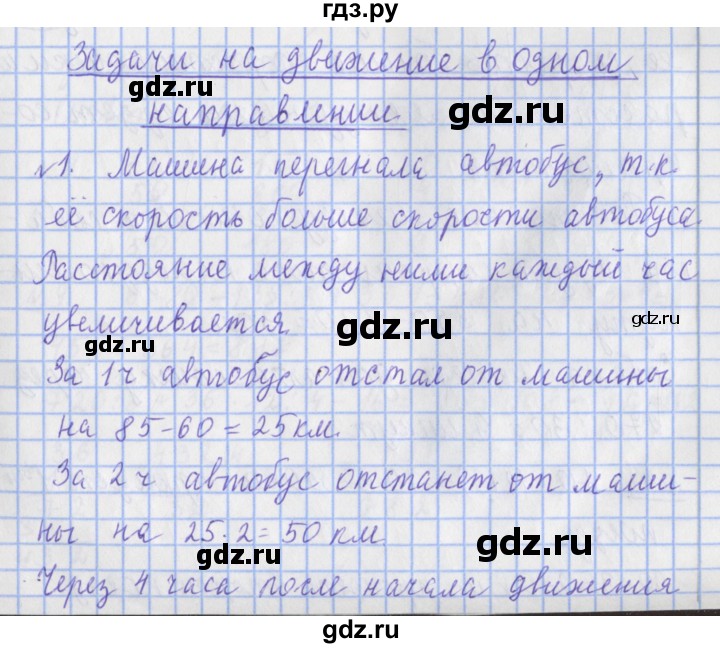 гдз.ру
Задачи на движение в одном
gdz.ru
направлении.
gdz.ru
№1. Машина перегнала автобус, т.к.
её скорость больше скорости автобуса.
Расстояние между ними каждый час
увеличивается.
gdz.ru
gdz.ru
gdz.ru
За 1ч автобус отстал от машины
на 85-60=25км.
За 2ч автобус отстанет от маши-
ны на 25·2=50км.
gdz.ru
gdz.ru
Через 4 часа после начала движения
gdz.ru